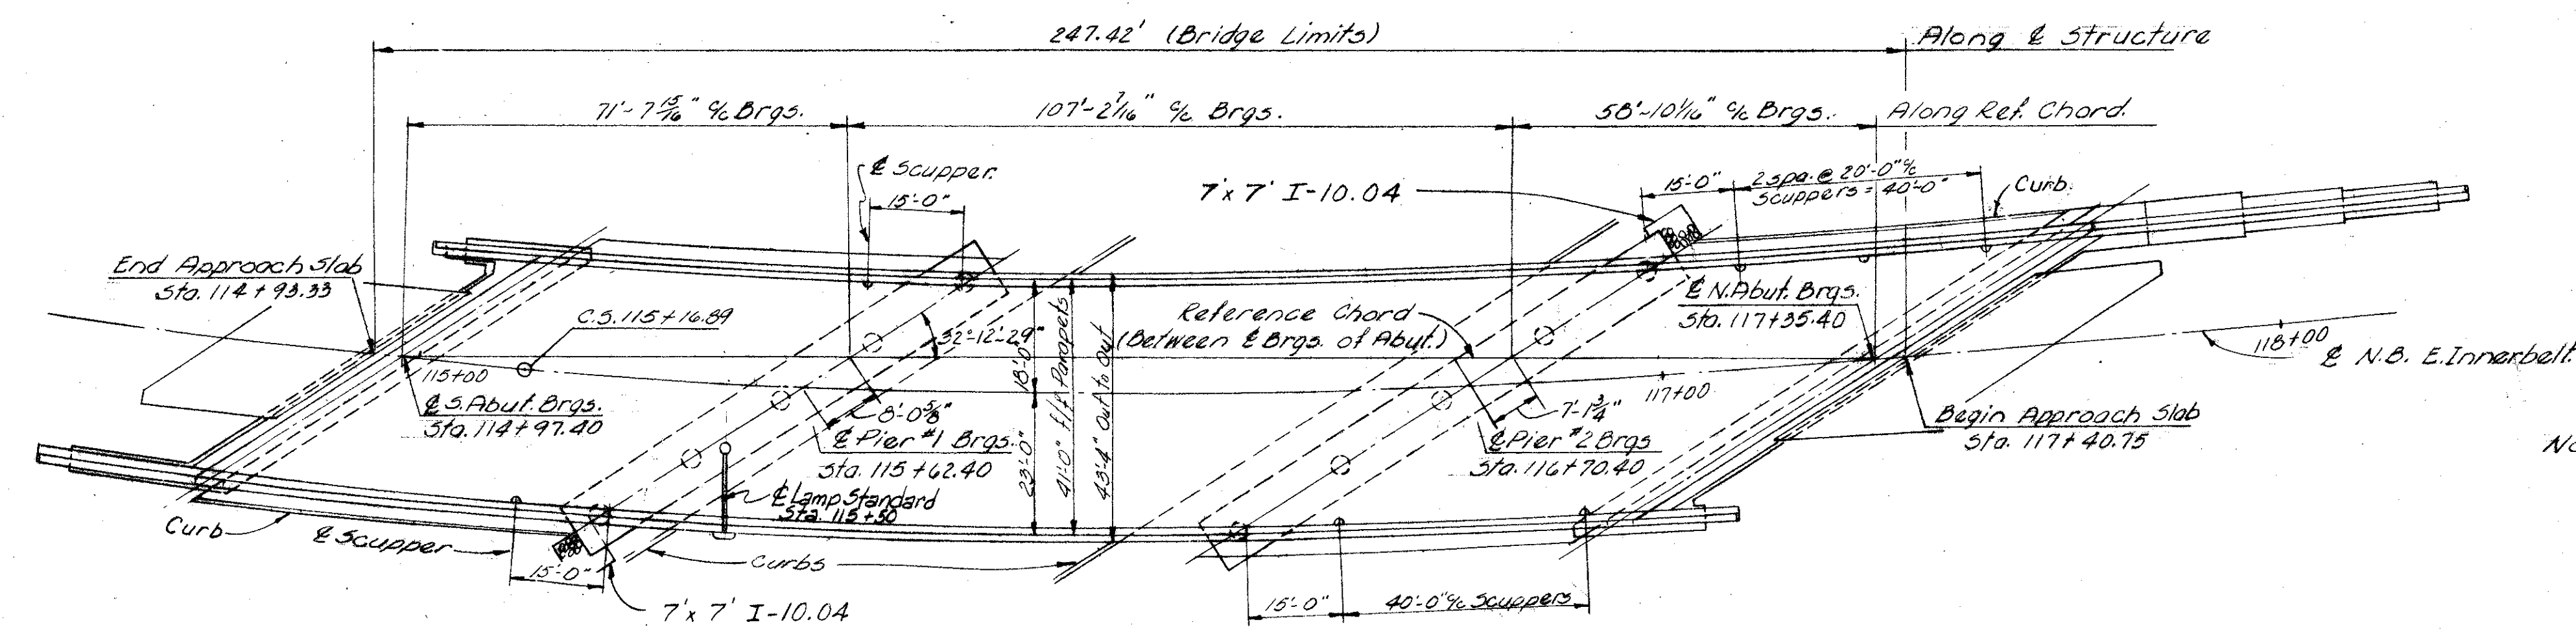 247.42' (Bridge Limits)
Along ℄ Structure
71'-7 15/16" c/c Brgs.
107'-2 7/16" c/c Brgs.
58'-10 1/16" c/c Brgs.
Along Ref. Chord.
℄ Scupper.
15'-0"
7'x 7' I-10.04
15'-0"
2 spa. @ 20'-0" c/c
Scuppers = 40'-0"
Curb.
End Approach Slab
Sta. 114+93.33
C.S. 115+16.89
32°-12'-29"
Reference Chord
(Between ℄ Brgs. of Abut.)
℄ N. Abut. Brgs.
Sta. 117+35.40
118+00
℄ N.B. E. Innerbelt.
115+00
℄ S. Abut. Brgs.
Sta. 114+97.40
18'-0"
23'-0"
41'-0" f/f Parapets
43'-4" Out to Out
8'-0 5/8"
℄ Pier #1 Brgs.
Sta. 115+62.40
7'-1 3/4"
117+00
℄ Pier #2 Brgs
Sta. 116+70.40
Begin Approach Slab
Sta. 117+40.75
℄ Lamp Standard
Sta. 115+50
Curb
℄ Scupper
Curbs
15'-0"
7'x 7' I-10.04
15'-0"
40'-0" c/c Scuppers